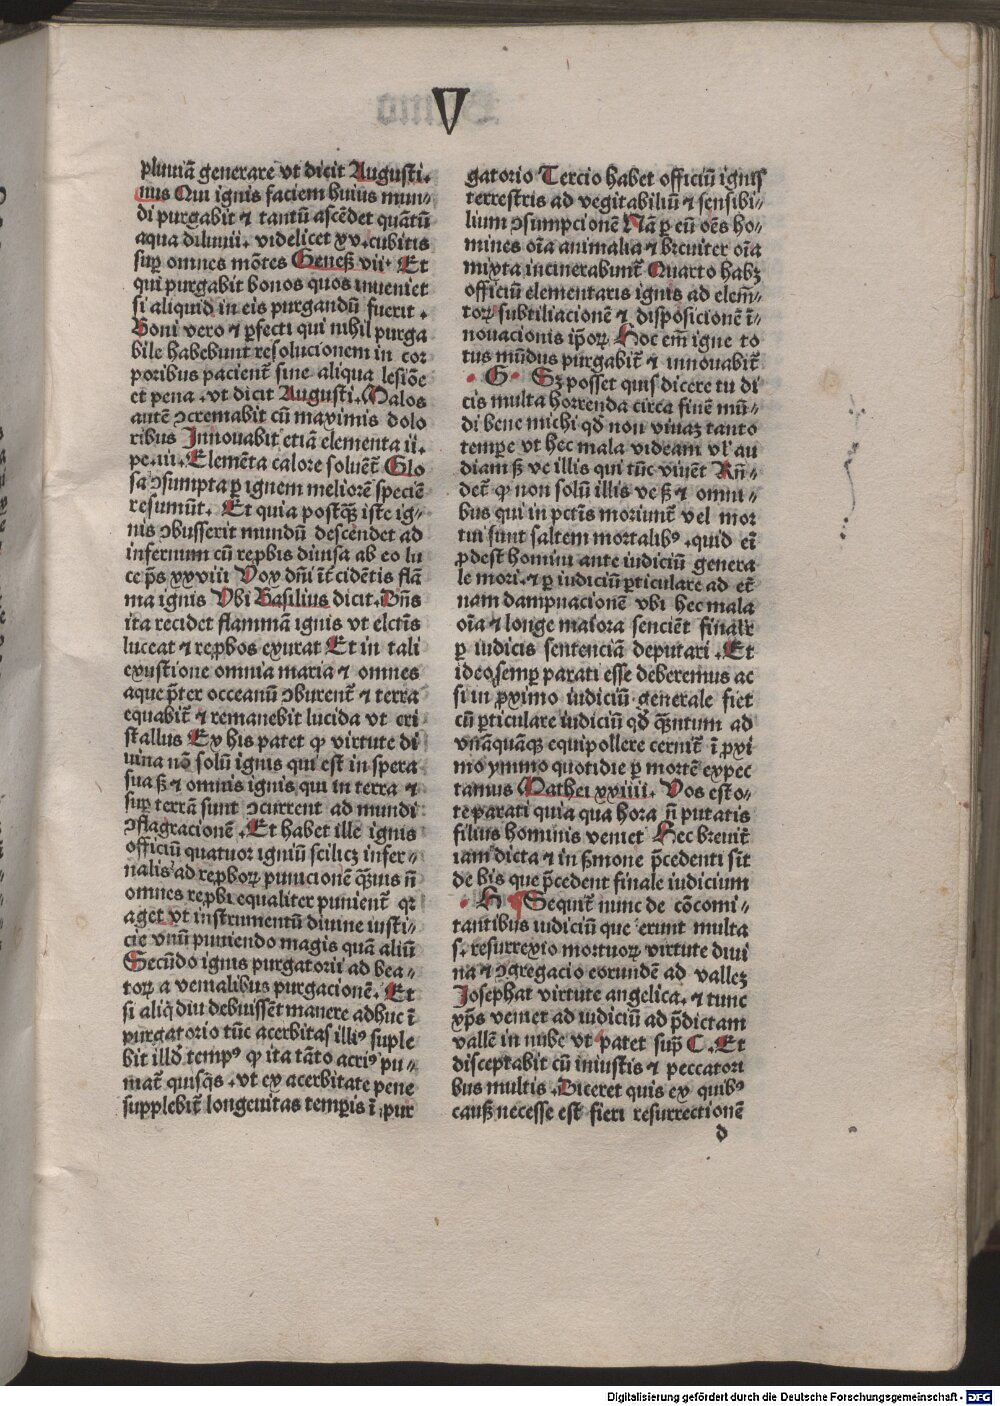 V
pluuiā generare vt dicit Augusti⸗
nus Qui ignis faciem huius mun⸗
di purgabit ⁊ tantū ascēdet quātū
aqua diluuii . videlicet xv. cubitis
sup̲ omnes mōtes Geneß vii. Et
qui purgabit bonos quos inueniet
si aliquid in eis purgandū fuerit .
Boni vero ⁊ p̲fecti qui nihil purga
bile habebunt resolucionem in cor
poribus pacient̄ sine aliqua lesiōe
et pena . vt dicit Augusti. Malos
autē ↄcremabit cū maximis dolo
ribus Innouabit etiā elementa ii.
pe.iii. Elemēta calore soluēt̄ Glo
sa ↄsumpta p̲ ignem meliorē speciē
resumūt. Et quia postq̄ꝫ iste ig⸗
nis ↄbusserit mundū descendet ad
infernum cū rep̲bis diuisa ab eo lu
ce p̄s xxviii Vox dn̄i īt̄cidētis flā
ma ignis Vbi Basilius dicit. Dn̄s
ita recidet flammā ignis vt elctīs
luceat ⁊ rep̲bos exurat Et in tali
exustione omnia maria ⁊ omnes
aque p̄ter occeanū ↄburent̄ ⁊ terra
equabit̄ ⁊ remanebit lucida vt cri
stallus Ex his patet ꝙ virtute di
uina nō solū ignis qui est in spera
sua ß ⁊ omnis ignis qui in terra ⁊
sup̲ terrā sunt ↄcurrent ad mundi
ↄflagracionē . Et habet ille ignis
officiū quatuor igniū scilicꝫ infer⸗
nalis ad rep̲boꝝ punicionē q̄ꝫuis n̄
omnes rep̲bi equaliter punient̄ qꝛ
aget vt instrumentū diuine iusti⸗
cie vnū puniendo magis quā aliū
Secūdo ignis purgatorii ad bea⸗
toꝝ a venialibus purgacionē. Et
si aliq̇ diu debuissēt manere adhuc ī
purgatorio tūc acerbitas illiꝰ suple
bit illd̄ tempꝰ ꝙ ita tāto acriꝰ pu⸗
niat̄ quisq̄s . vt ex acerbitate pene
supplebit̄ longeuitas temp̲is ī pur
gatorio Tercio habet officiū ignis
terrestris ad vegitabiliū ⁊ sensibi⸗
lium ↄsumpcionē Nā p̲ eū oēs ho⸗
mines oīa animalia ⁊ breuiter oīa
mixta incinerabunt̄ Quarto habꝫ
officiū elementaris ignis ad elem̄⸗
toꝝ subtiliacionē ⁊ disposicionē ī⸗
nouacionis ip̄oꝝ Hoc em̄ igne to
tus mūdus purgabit̄ ⁊ innouabit̄
. G . Sꝫ posset quis dicere tu di
cis multa horrenda circa finē mū⸗
di bene michi qd̄ non viuaꝫ tanto
tempe vt hec mala videam vl̓ au
diam ß ve illis qui tūc viuēt Rn̄⸗
det̄ ꝙ non solū illis ve ß ⁊ omni⸗
bus qui in pctīs moriunt̄ vel mor
tui sunt saltem mortalibꝰ . quid eī
p̲dest homini ante iudiciū genera
le mori . ⁊ p̲ iudiciū p̲ticulare ad et̄
nam dampnacionē vbi hec mala
oīa ⁊ longe maiora senciēt finalr̄
p̲ iudicis sentenciā deputari . Et
ideo semp̲ parati esse deberemus ac
si in p̲ximo iudiciū generale fiet
cū p̲ticulare iudiciū qd̄ q̄ntum ad
vnāquāqꝫ equipollere cernit̄ ī p̲xi
mo ymmo quotidie p̲ mortē expec
tamus Mathei xxiiii. Vos esto⸗
te parati quia qua hora n̄ putatis
filius hominis veniet Hec breuit̄
iam dicta ⁊ in ßmone p̄cedenti sīt
de his que p̄cedent finale iudicium
. H . Sequit̄ nunc de cōcomi⸗
tantibus iudiciū que erunt multa
s. resurrexio mortuoꝝ virtute diui
na ⁊ ↄgregacio eorundē ad valleꝫ
Josephat virtute angelica. ⁊ tunc
xp̄s veniet ad iudiciū ad p̄dictam
vallē in nube vt patet sup̄ C. Et
disceptabit cū iniustis ⁊ peccatori
bus multis . Diceret quis ex quibꝰ
cauß necesse est fieri resurrectionē
d
Digitalisierung gefördert durch die Deutsche Forschungsgemeinschaft - DFG